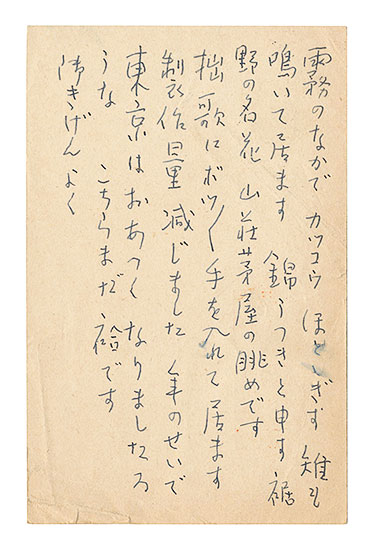 霧のなかで カツコウ ほとゝぎす 雉も
鳴いて居ます 錦うつぎと申す 裾
野の名花 山荘茅屋の眺めです
拙歌にボツ〳〵手を入れて居ます
製作量減じました 年のせいで
東京はおあつくなりましたろ
うな こちらまだ袷です
御きげんよく